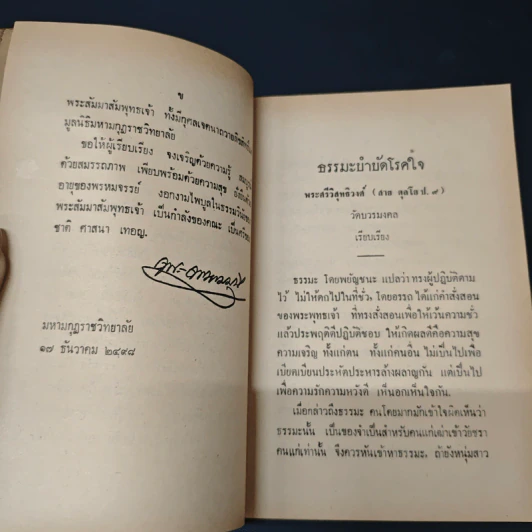 ข
พระสัมมาสัมพุทธเจ้า ทั้งมีกุศลเจตนาถวายลิขสิทธิ์
มูลนิธิมหามกุฏราชวิทยาลัย
ขอให้ผู้เรียบเรียง จงเจริญด้วยความรู้
ด้วยสมรรถภาพ เพียบพร้อมด้วยความสุข
อายุของพรหมจรรย์ งอกงามไพบูลในธรรมวินัยของ
พระสัมมาสัมพุทธเจ้า เป็นกำลังของคณะ
ชาติ ศาสนา เทอญ.
มหามกุฏราชวิทยาลัย
๑๗ ธันวาคม ๒๔๙๘
ธรรมะบำบัดโรคใจ
พระศรีวิสุทธิวงศ์ (สาย ตุลโย ป. ๙)
วัดบวรมงคล
เรียบเรียง
ธรรมะ โดยพยัญชนะ แปลว่า ทรงผู้ปฏิบัติตาม
ไว้ ไม่ให้ตกไปในที่ชั่ว, โดยอรรถ ได้แก่คำสั่งสอน
ของพระพุทธเจ้า ที่ทรงสั่งสอนเพื่อให้เว้นความชั่ว
แล้วประพฤติดีปฏิบัติชอบ ให้เกิดผลดีคือความสุข
ความเจริญ ทั้งแก่ตน ทั้งแก่คนอื่น ไม่เป็นไปเพื่อ
เบียดเบียนประหัตประหารล้างผลาญกัน แต่เป็นไป
เพื่อความรักความหวังดี เห็นอกเห็นใจกัน.
เมื่อกล่าวถึงธรรมะ คนโดยมากมักเข้าใจผิดเห็นว่า
ธรรมะนั้น เป็นของจำเป็นสำหรับคนแก่เฒ่าเข้าวัยชรา
คนแก่เท่านั้น จึงควรหันเข้าหาธรรมะ, ถ้ายังหนุ่มสาว